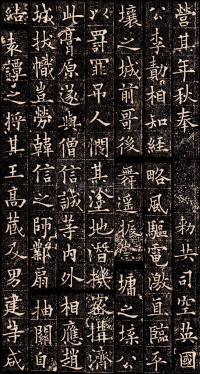 營其年秋奉 勅共司空英國
公李勣相知經略風驅電激直臨平
壤之城前哥後舞遙振墉之堞公
以罰罪吊人憫其塗地潛機密構濟
此膏原遂與僧信誠等內外相應趙
城拔幟豈勞韓信之師鄴扇抽關自
結袁譚之將其王高藏及男建等咸